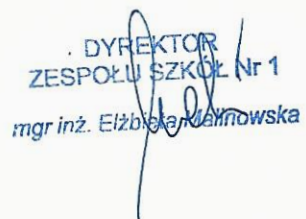 DYREKTOR
ZESPOŁU SZKÓŁ Nr 1
mgr inż. Elżbieta Malinowska